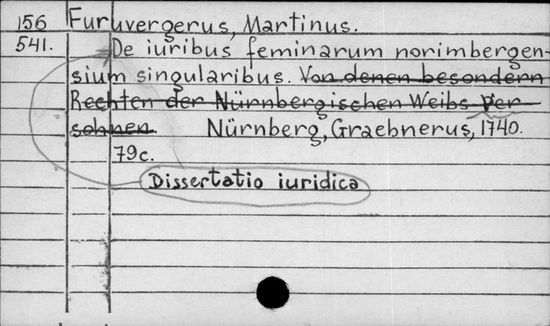 156 Furuvergerus, Martinus.
541. De iuribus feminarum norimbergen-
sium singularibus. Von denen besondern
Rechten der Nürnbergischen Weibs Per
sohnen. Nürnberg, Graebnerus, 1740.
79c.
Dissertatio iuridica